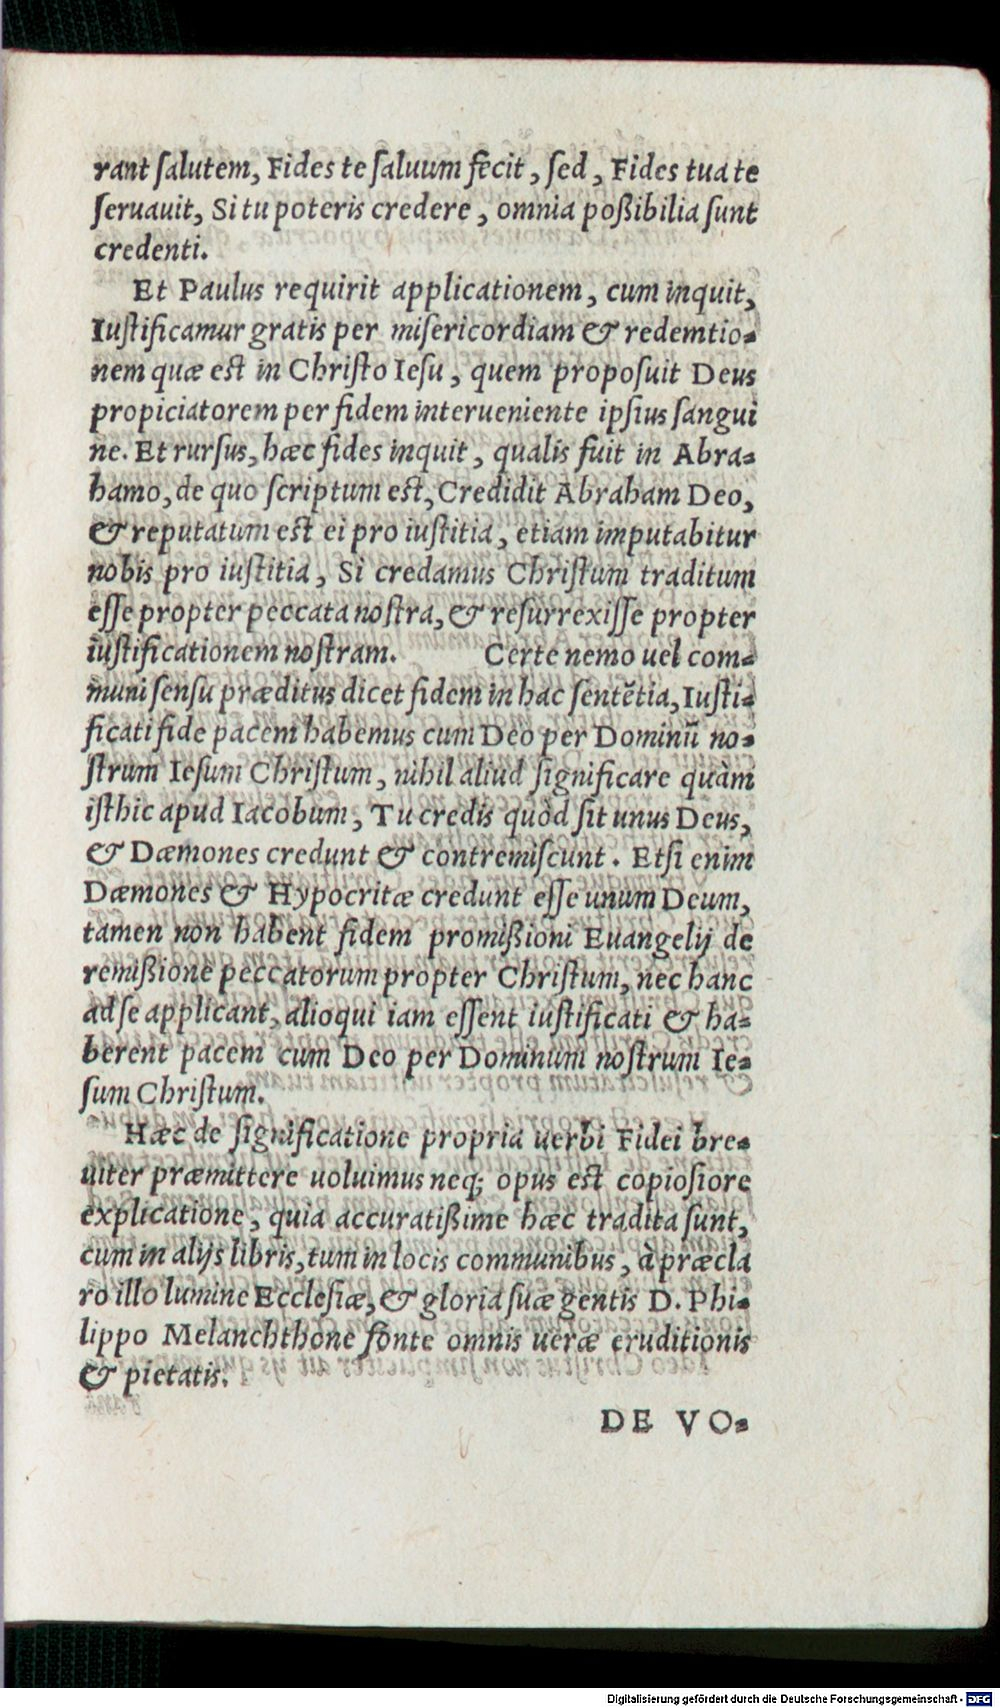 rant ſalutem, Fides te ſaluum fecit, ſed, Fides tua te
ſeruauit, Si tu poteris credere, omnia poßibilia ſunt
credenti.
Et Paulus requirit applicationem, cum inquit,
Iuſtificamur gratis per miſericordiam & redemtio-
nem quæ eſt in Chriſto Ieſu, quem propoſuit Deus
propiciatorem per fidem interueniente ipſius ſangui
ne. Et rurſus, hæc fides inquit, qualis fuit in Abra-
hamo, de quo ſcriptum eſt, Credidit Abraham Deo,
& reputatum eſt ei pro iuſtitia, etiam imputabitur
nobis pro iuſtitia, Si credamus Chriſtum traditum
eſſe propter peccata noſtra, & reſurrexiſſe propter
iuſtificationem noſtram. Certe nemo uel com-
muni ſenſu præditus dicet fidem in hac ſentētia, Iuſti-
ficati fide pacem habemus cum Deo per Dominū no-
ſtrum Ieſum Chriſtum, nihil aliud ſignificare quàm
iſthic apud Iacobum, Tu credis quòd ſit unus Deus,
& Dæmones credunt & contremiſcunt. Etſi enim
Dæmones & Hypocritæ credunt eſſe unum Deum,
tamen non habent fidem promißioni Euangelij de
remißione peccatorum propter Chriſtum, nec hanc
ad ſe applicant, alioqui iam eſſent iuſtificati & ha-
berent pacem cum Deo per Dominum noſtrum Ie-
ſum Chriſtum.
Hæc de ſignificatione propria uerbi Fidei bre-
uiter præmittere uoluimus neq; opus eſt copioſiore
explicatione, quia accuratißime hæc tradita ſunt,
cum in alijs libris, tum in locis communibus, à præcla
ro illo lumine Eccleſiæ, & gloria ſuæ gentis D. Phi-
lippo Melanchthone fonte omnis ueræ eruditionis
& pietatis.
DE VO-
Digitalisierung gefördert durch die Deutsche Forschungsgemeinschaft - DFG